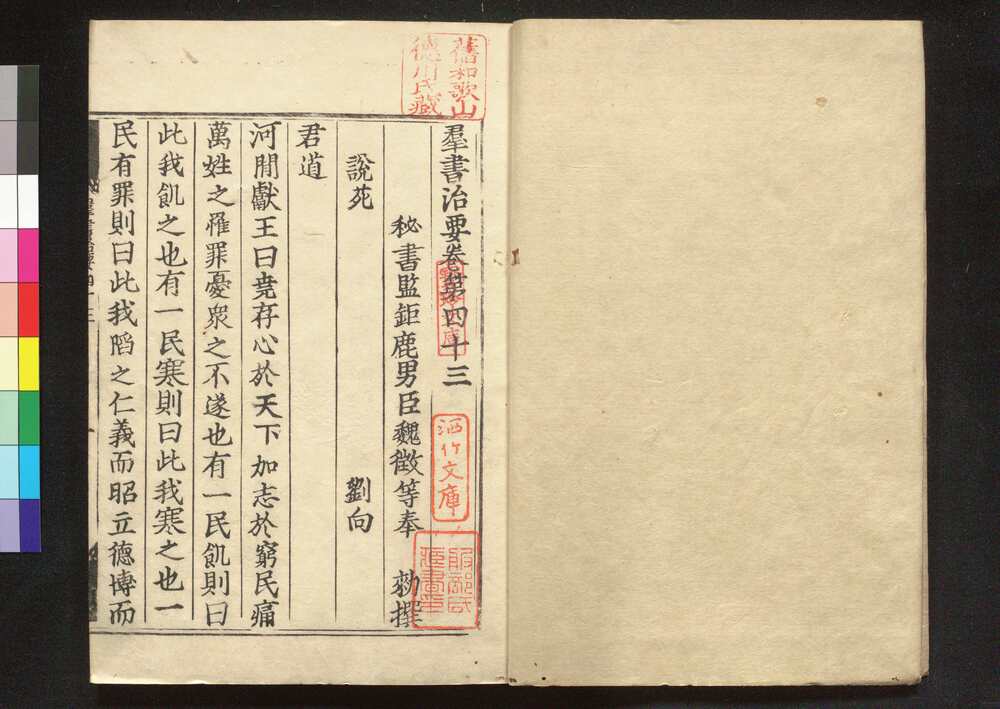 羣書治要卷第四十三
秘書監鉅鹿男臣魏徵等奉 勑撰
說苑 劉向
君道
河閒獻王曰堯存心於天下加志於窮民痛
萬姓之罹罪憂衆之不遂也有一民飢則曰
此我飢之也有一民寒則曰此我寒之也一
民有罪則曰此我陷之仁義而昭立德博而
舊和歌山
德川氏藏
洒竹文庫
服部氏